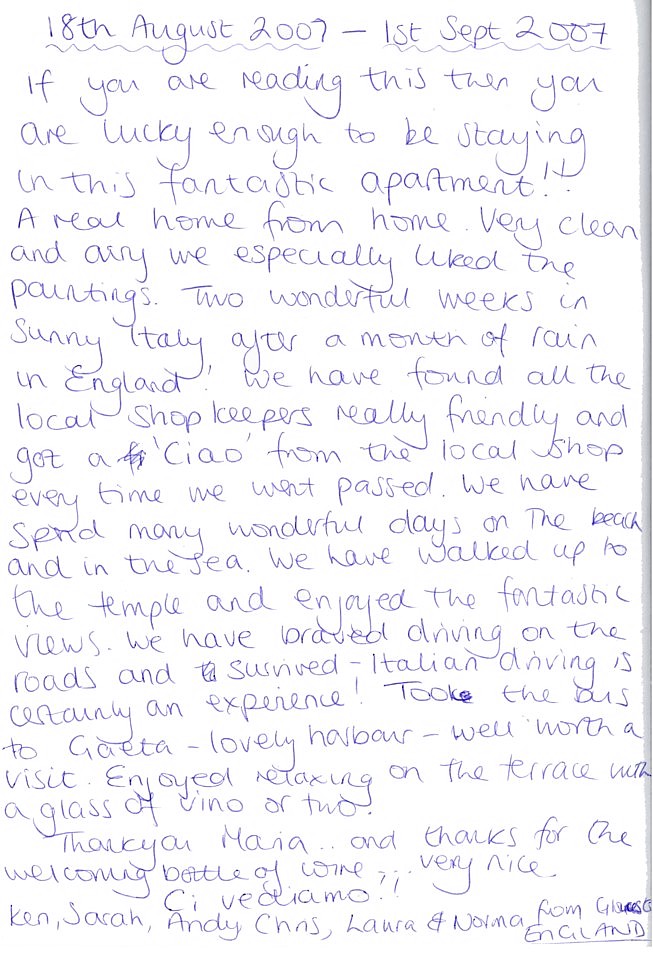 18th August 2007 – 1st Sept 2007
If you are reading this then you
are lucky enough to be staying
in this fantastic apartment!!
A real home from home. Very clean
and airy we especially liked the
paintings. Two wonderful weeks in
Sunny Italy after a month of rain
in England! We have found all the
local shop keepers really friendly and
got a 'Ciao' from the local shop
every time we went passed. We have
spend many wonderful days on The beach
and in the Sea. We have walked up to
the temple and enjoyed the fantastic
views. We have braved driving on the
roads and survived – Italian driving is
certainly an experience! Took the bus
to Gaeta – lovely harbour – well worth a
visit. Enjoyed relaxing on the terrace with
a glass of vino or two.
Thankyou Maria .. and thanks for the
welcoming bottle of wine ... very nice
Ci vediamo!!
Ken, Sarah, Andy Chris, Laura & Norma from
ENGLAND